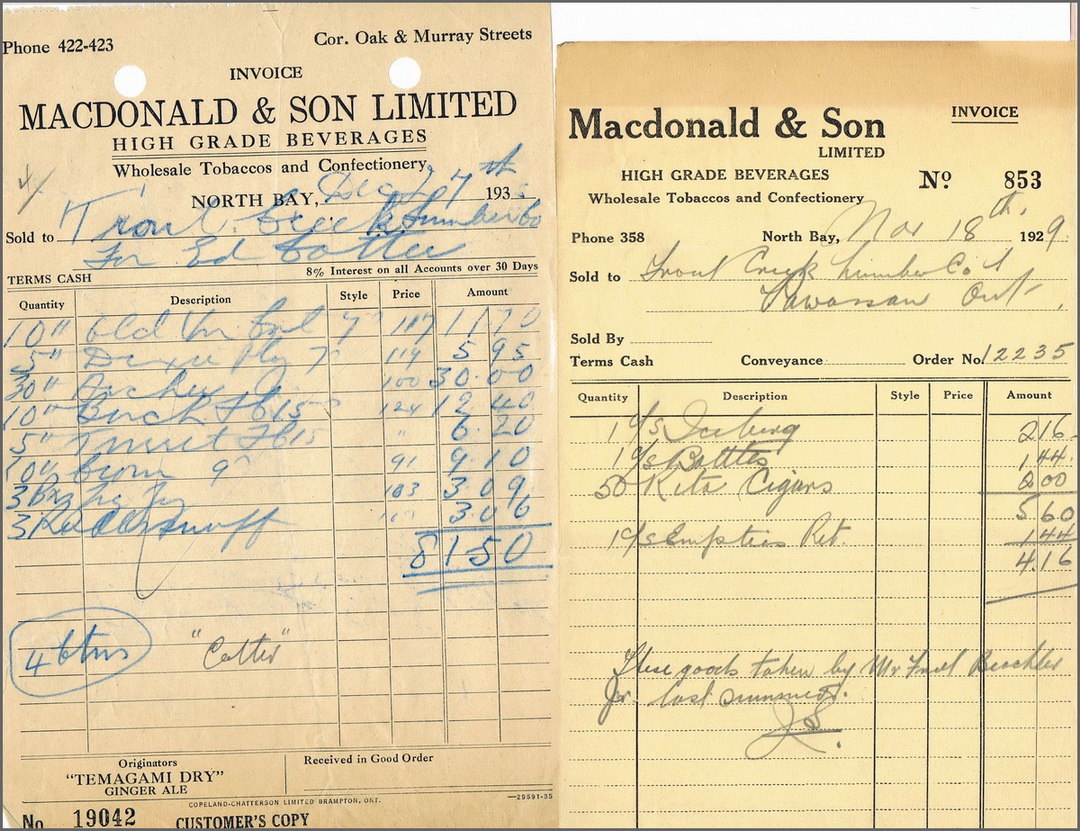 Phone 422-423
Cor. Oak & Murray Streets
INVOICE
MACDONALD & SON LIMITED
HIGH GRADE BEVERAGES
Wholesale Tobaccos and Confectionery
NORTH BAY, Dec 7th 193
Sold to Trout Creek Lumber Co
For Ed Cotter
TERMS CASH 8% Interest on all Accounts over 30 Days
Quantity Description Style Price Amount
10" Old 7 117 11 70
5" Dixie Plg 7 119 5 95
30" Archer 100 30.00
10" Buck 124 12 40
5" " 6.20
10" 9 91 9.10
3 103 3.09
3 Snuff 3.06
81.50
4 btms "Cotter"
Originators
"TEMAGAMI DRY"
GINGER ALE
Received in Good Order
COPELAND-CHATTERSON LIMITED BRAMPTON, ONT. —25591-35
No 19042 CUSTOMER'S COPY
INVOICE
Macdonald & Son
LIMITED
HIGH GRADE BEVERAGES
No 853
Wholesale Tobaccos and Confectionery
Phone 358 North Bay, Nov 18th, 1929.
Sold to Trout Creek Lumber Co
Powassan Ont.
Sold By
Terms Cash Conveyance Order No. 12235
Quantity Description Style Price Amount
1 c/s Iceberg 216
1 c/s Bottles 144
50 Rita Cigars 200
560
1 c/s Empties Ret. 144
4.16
These goods taken by Mr Fred
Jr. last summer.
JS.